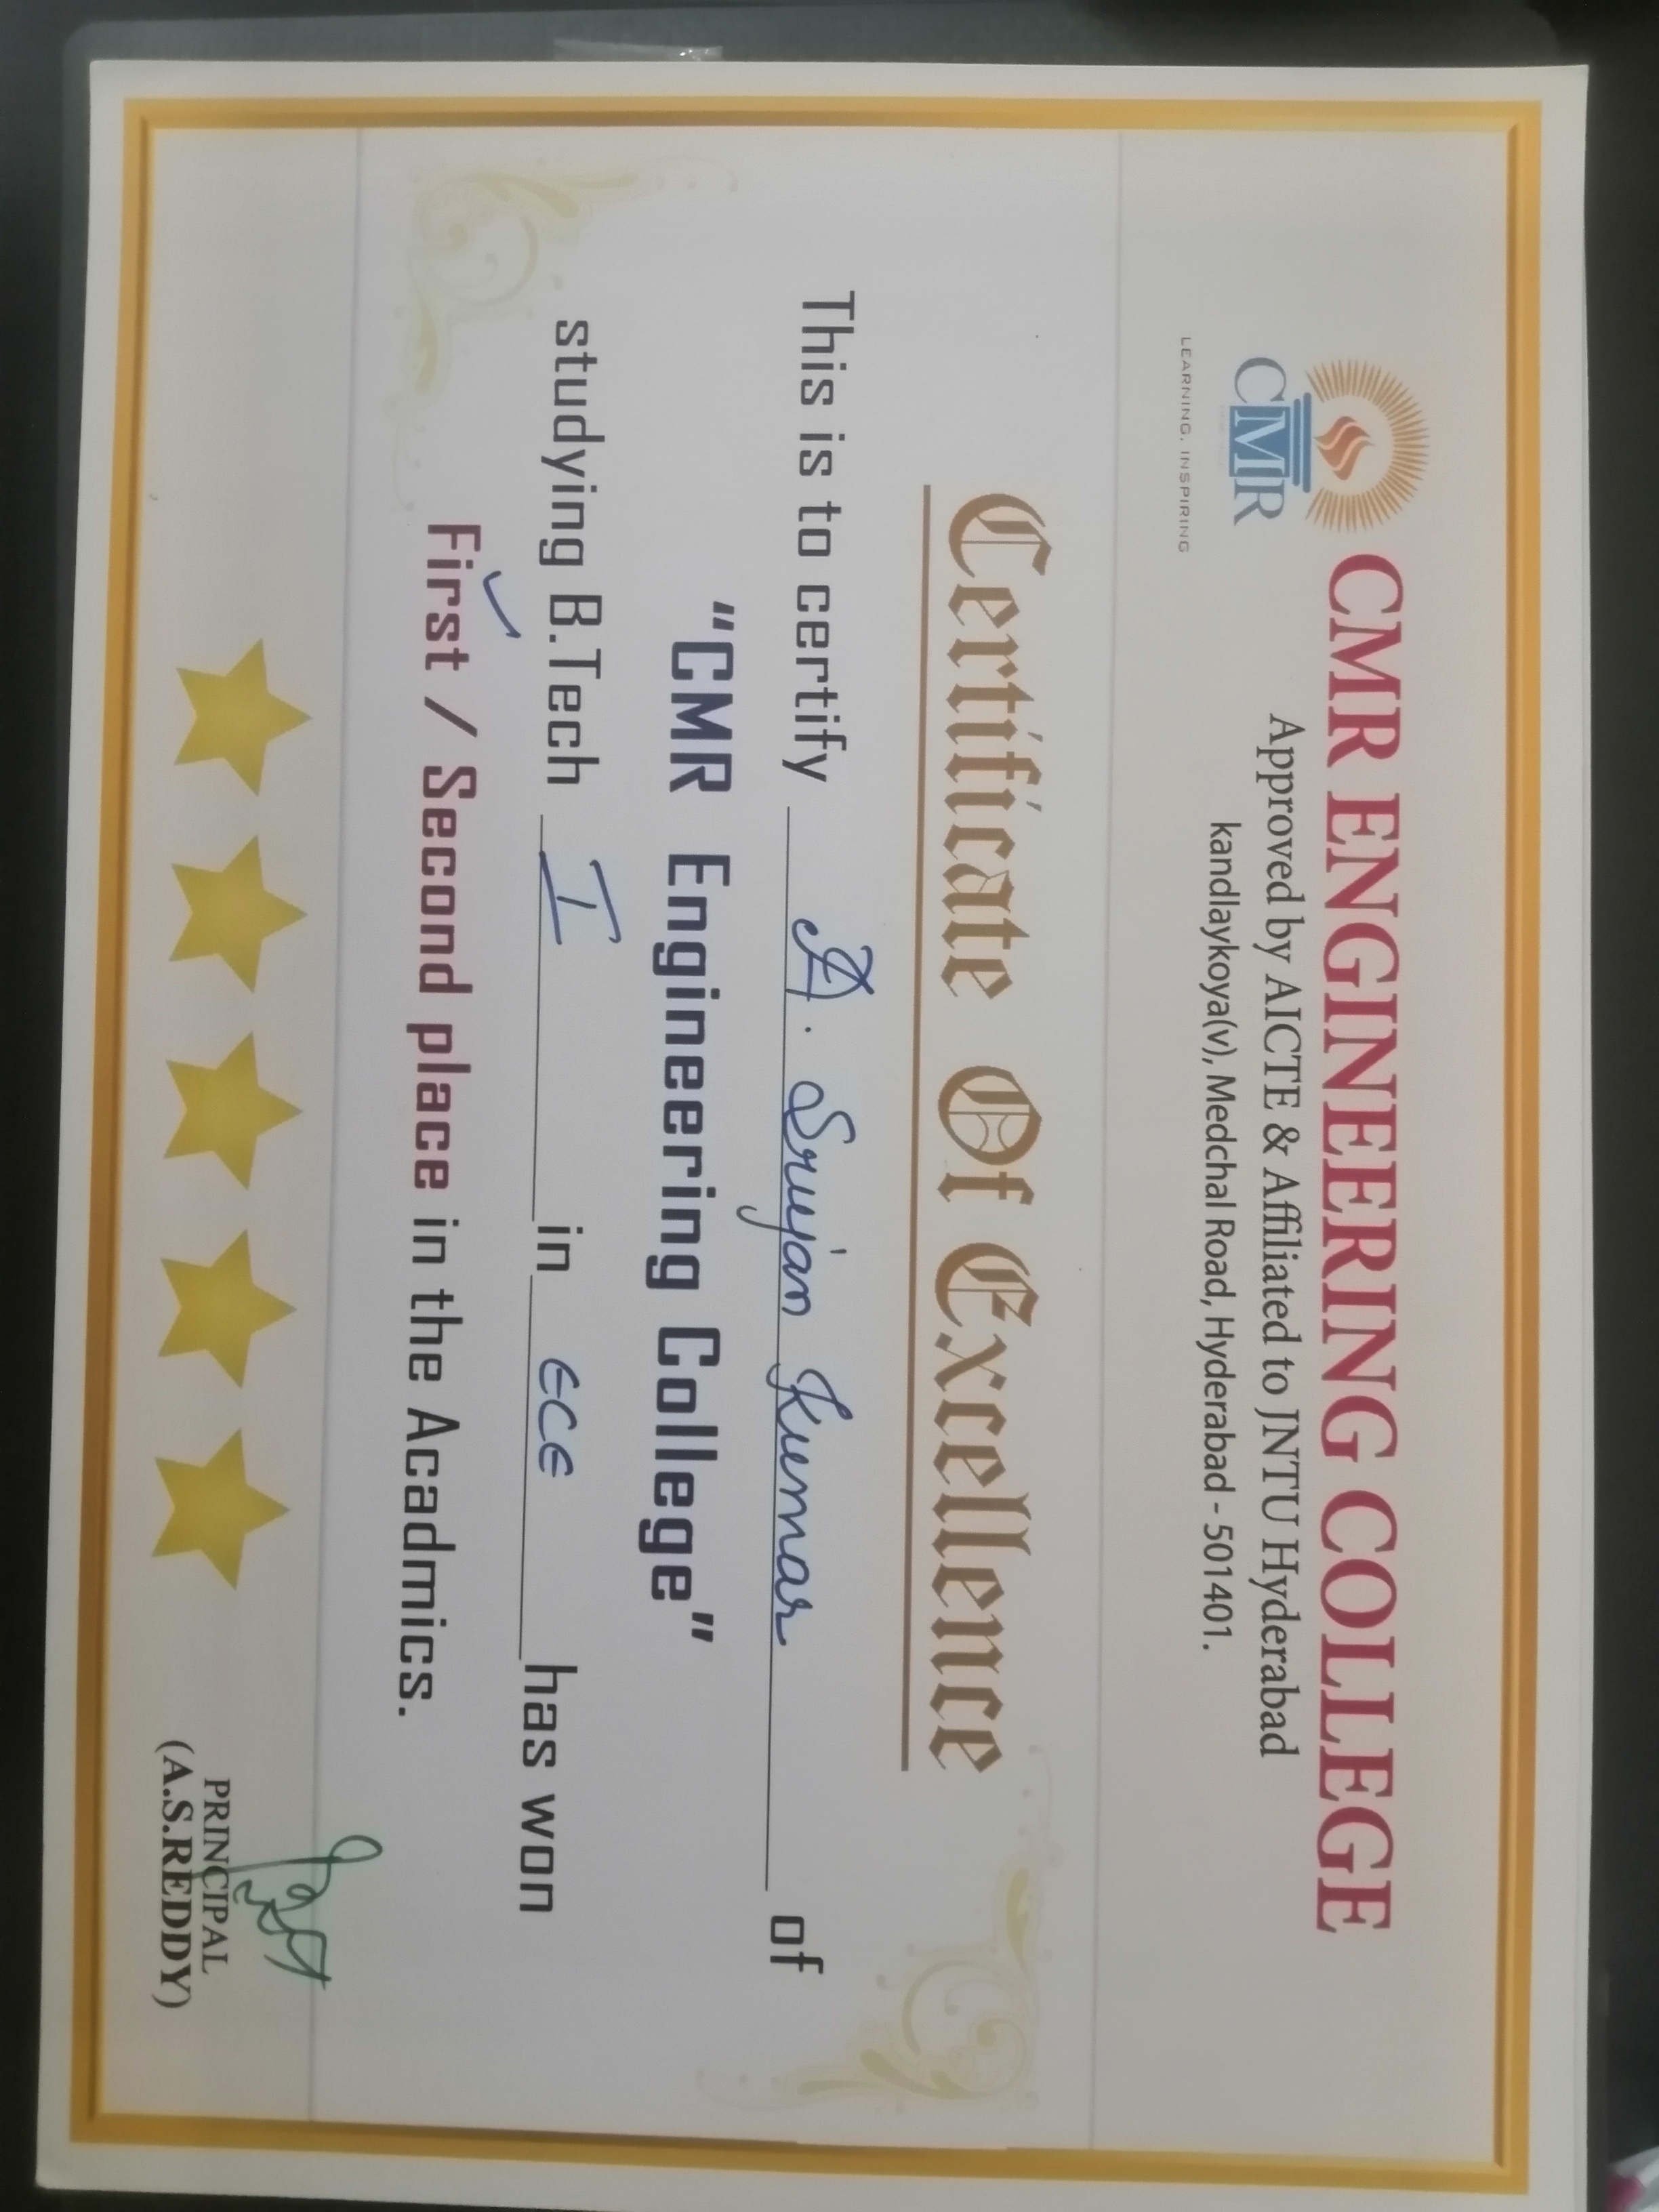 CMR ENGINEERING COLLEGE
Approved by AICTE & Affiliated to JNTU Hyderabad
kandlaykoya(v), Medchal Road, Hyderabad - 501401.
CMR
LEARNING. INSPIRING
Certificate Of Excellence
This is to certify A. Srujan Kumar of
“CMR Engineering College”
studying B.Tech I in ECE has won
First / Second place in the Acadmics.
PRINCIPAL
(A.S.REDDY)